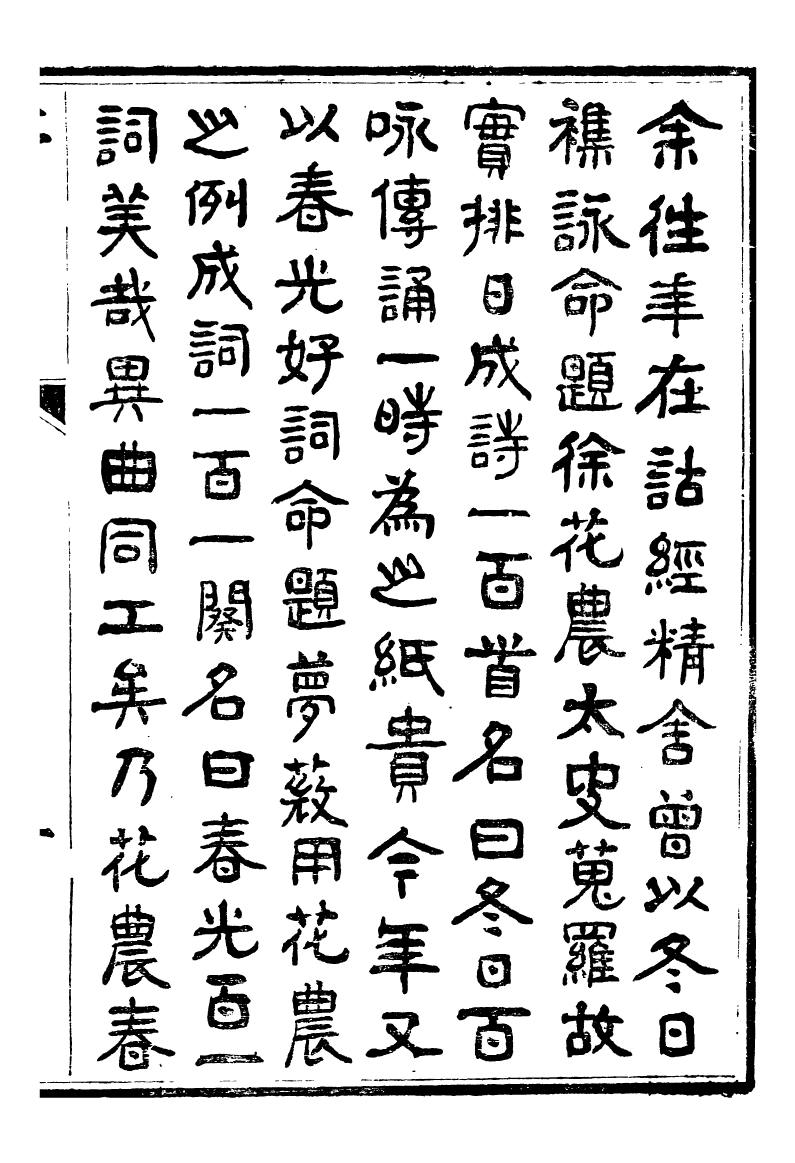 余往年在詁經精舍曾以冬日
襍詠命題徐花農太史蒐羅故
實排日成詩一百首名曰冬日百
咏傳誦一時為之紙貴今年又
以春光好詞命題夢薇用花農
之例成詞一百一闋名曰春光百一
詞美哉異曲同工矣乃花農春